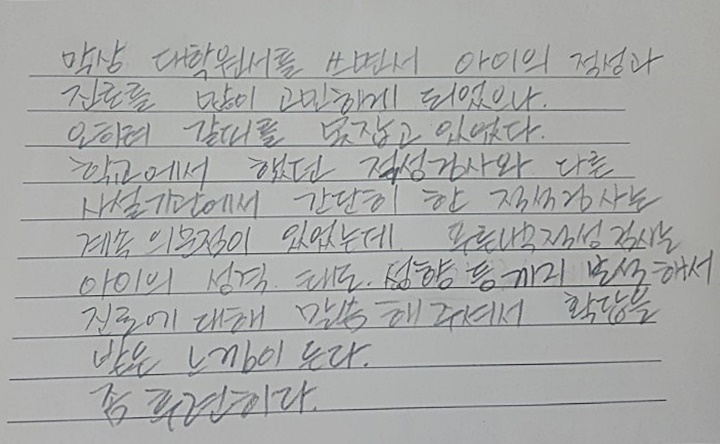 막상 대학원서를 쓰면서 아이의 적성과
진로를 많이 고민하게 되었으나.
오히려 갈피를 못잡고 있었다.
학교에서 했던 적성검사와 다른
사설기관에서 간단히 한 적성검사는
계속 의문점이 있었는데 푸른나무적성검사는
아이의 성격. 태도. 성향 등까지 분석해서
진로에 대해 말씀해주셔서 확답을
받은 느낌이 든다.
좀 후련하다.